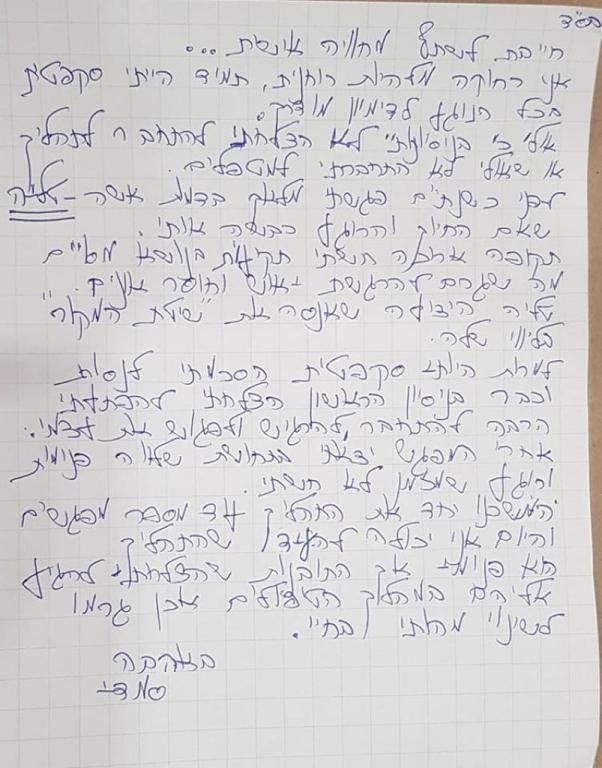 בס"ד
חייבת לשתף מחוויה אישית ...
אני רחוקה מלהיות רוחנית, תמיד הייתי סקפטית
בכל הנוגע לדימיון מודרך.
אולי כי בניסיונותיי לא הצלחתי להתחבר לתהליך
או שאולי לא התחברתי למטפלים.
לפני כשנתיים פגשתי מלאך בדמות אשה - טליה
שאם החיוך והרוגע כבשה אותי.
תקופה ארוכה חשתי תקיעות בנושא מסויים
מה שגרם להרגשת יאוש וחוסר אונים.
טליה הציעה שאנסה את "שיטת המקור"
בליווי שלה.
למרות היותי סקפטית הסכמתי לנסות
וכבר בניסיון הראשון הצלחתי להפתעתי
הרבה להתחבר, להרגיש ולפגוש את עצמי.
אחרי המפגש יצאתי בתחושת שלווה פנימית
ורוגע שמזמן לא חשתי.
המשכנו יחד את התהליך עד מספר מפגשים
והיום אני יכולה להעיד שהתהליך
הוא פנימי אך התובנות שהצלחתי להגיע
אליהם במהלך הטיפולים אכן גרמו
לשינוי מהותי בחיי.
באהבה
סמדי